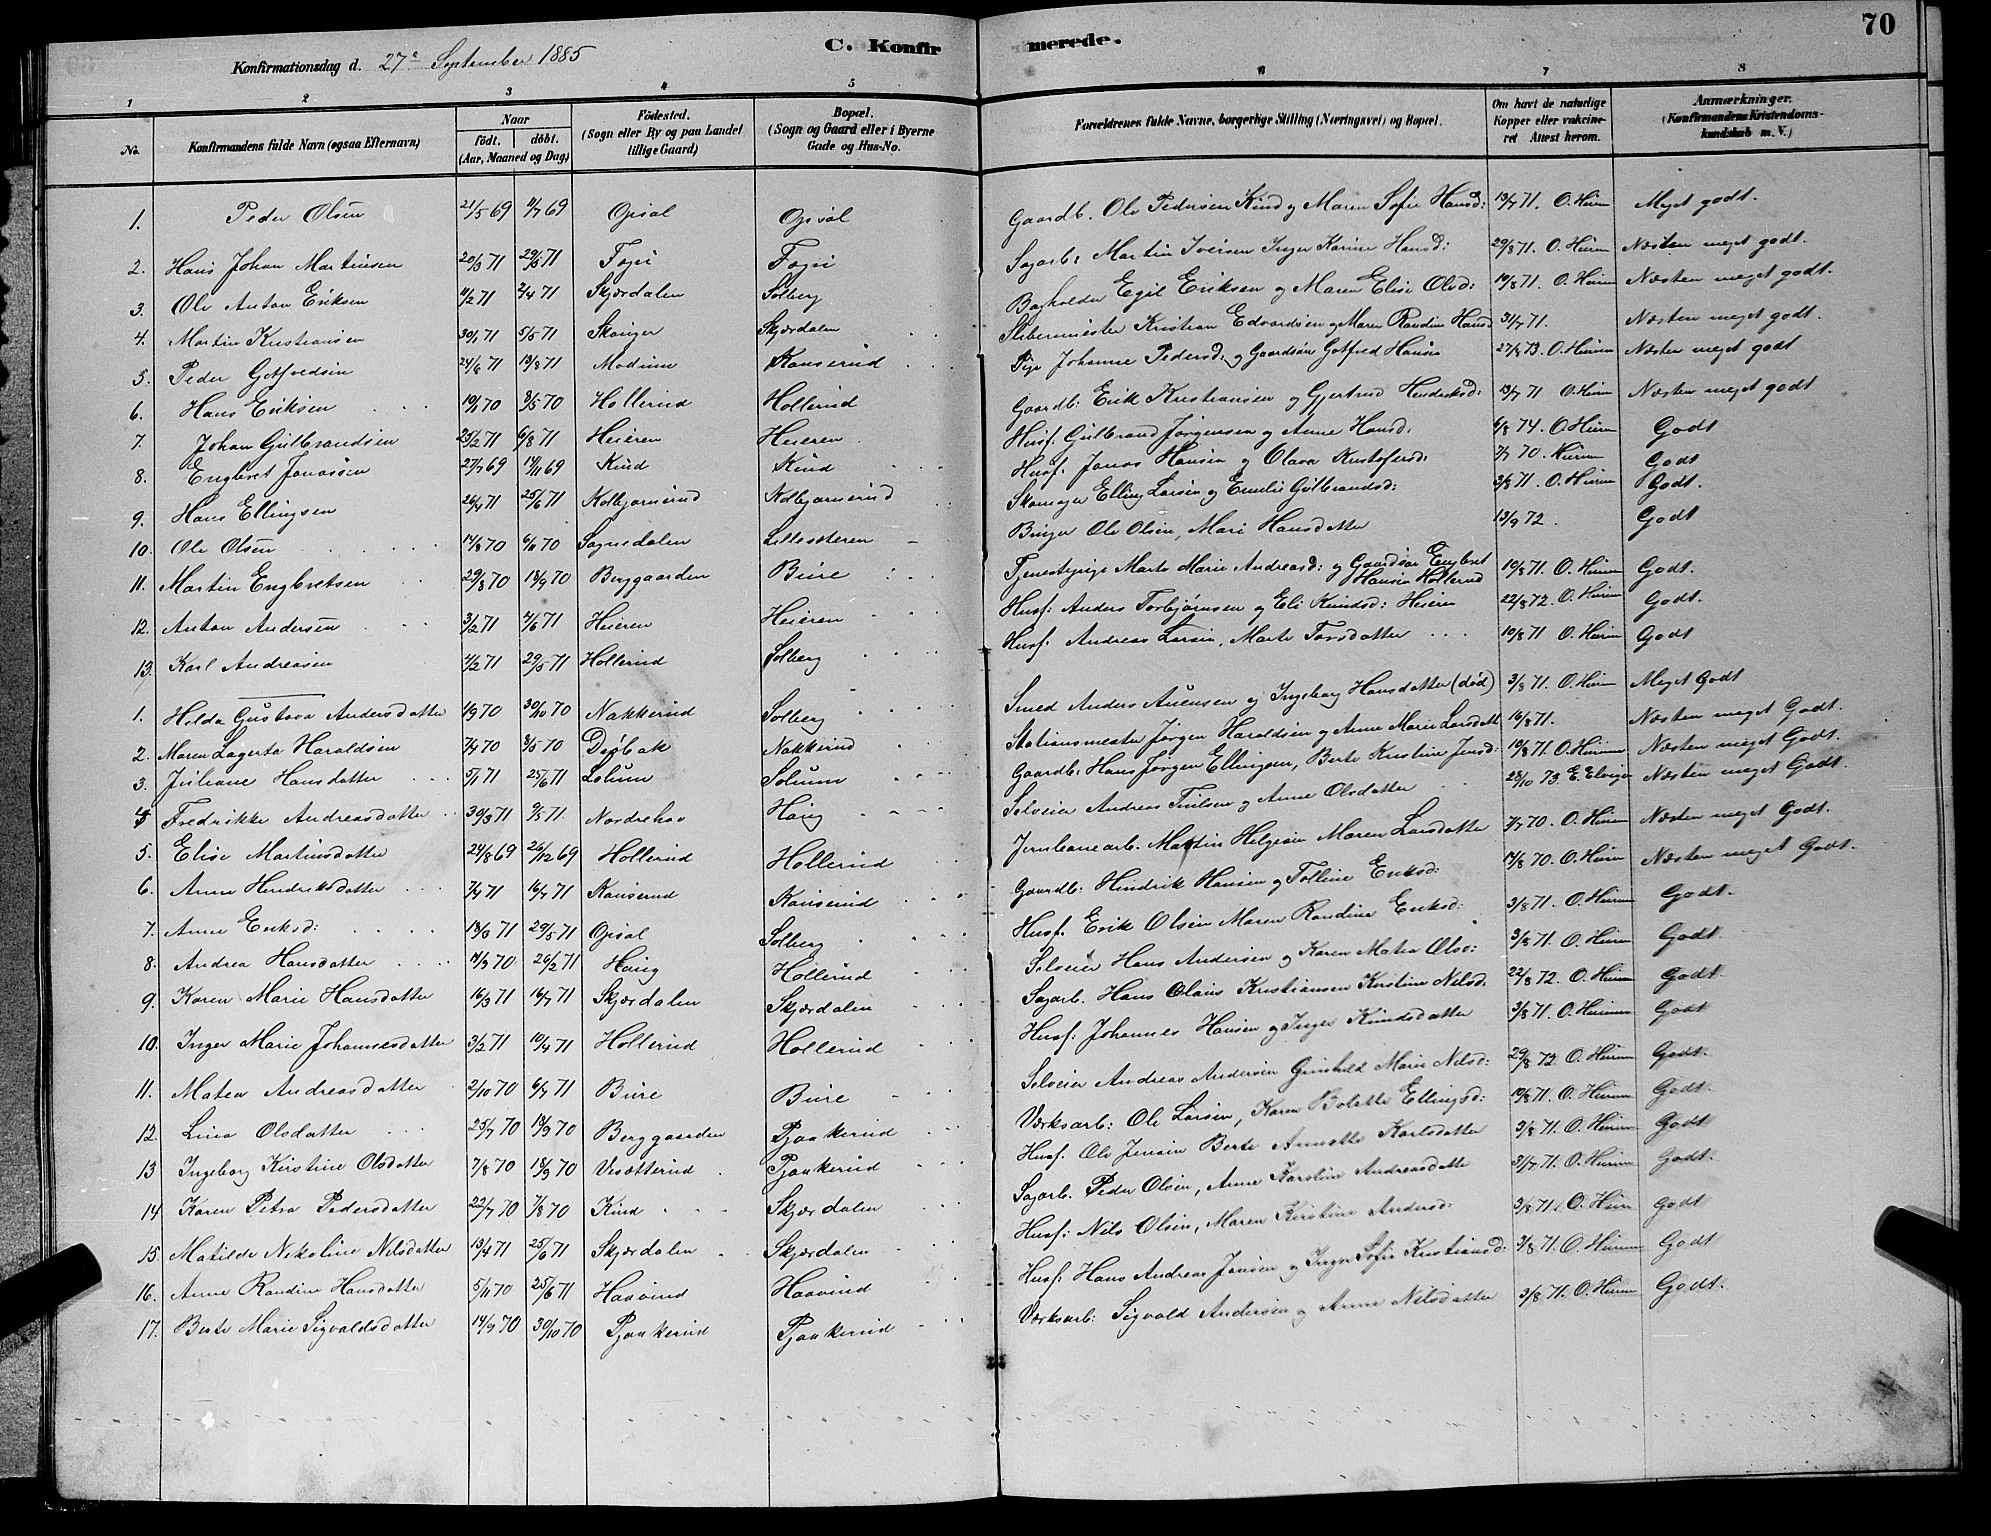 70
C. Konfirmerede.
Konfirmationsdag d. 27de September 1885
1 2 3 4 5 6 7 8
No. Konfirmandens fulde Navn (ogsaa Efternavn) Naar født. døbt. (Aar, Maaned og Dag) Fødested. (Sogn eller By og paa Landet tillige Gaard) Bopæl. (Sogn og Gaard eller i Byerne Gade og Hus-No. Forældrenes fulde Navne, borgerlige Stilling (Næringsvei) og Bopæl. Om havt de naturlige Kopper eller vakcineret Attest herom. Anmærkninger. (Konfirmandens Kristendomskundskab m. V.)
1. Peder Olsen 21/5 69 11/7 69 Opsal Opsal Gaardb. Ole Pedersen Kind og Maren Sofie Hansd: 13/7 71. O. Heiren Meget godt.
2. Hans Johan Martinsen 20/3 71 29/5 71 Fegri Fegri Sagarb: Martin Iversen Inger Karine Hansd: 29/8 71. O. Heiren Næsten meget godt.
3. Ole Anton Eriksen 11/2 71 2/4 71 Skjærdalen Solberg Bogholder Egil Eriksen og Maren Elise Olsd: 19/8 71. O. Heiren Næsten meget godt.
4. Martin Kristiansen 30/1 71 5/5 71 Stanger Skjærdalen Slibermester Kristian Edvardsen og Maren Randine Hansd 31/7 71. Næsten meget godt.
5. Peder Gotfredsen 24/6 71 13/8 71 Modum Kanserud Pige Johanne Pedersd: og Gaardsøn Gotfred Hansen 27/8 73. O. Heiren Næsten meget godt
6. Hans Eriksen 70 8/5 70 Hollerud Hollerud Gaardb: Erik Kristiansen og Gjertrud Hendriksd: 13/7 71 O. Heiren Næsten meget godt
7. Johan Gulbrandsen 23/2 71 6/8 71 Heieren Heieren Husf. Gulbrand Jørgensen og Anne Hansd. 6/8 74. O. Heiren Godt
8. Engbret Jonassen 27/7 69 14/11 69 Kind Kind Husf. Jonas Hansen og Olava Kristofersd: 7/7 70. Heiren Godt
9. Hans Ellingsen 26/4 71 25/6 71 Kolbjørnerud Kolbjørnerud Skomager Elling Larsen og Emilie Gulbrandsd: 3/8 71. O. Heiren Godt.
10. Ole Olsen 14/8 70 6/11 70 Sognedalen Lillesæteren Bruger Ole Olsen, Mari Hansdatter 13/9 72. Godt
11. Martin Engbretsen 29/8 70 18/9 70 Berggaarden Bure Tjenestepige Marte Marie Andreasd: og Gaardsøn Engbret Hansen Hollerud 10/8 71. O. Heiren Godt.
12. Anton Andersen 3/2 71 4/6 71 Heieren Heieren Husf: Anders Torbjørnsen og Eli Knudsd: Heiren 22/8 72. O. Heiren Godt.
13. Karl Andreasen 4/2 71 29/5 71 Hollerud Solberg Husf. Andreas Larsen, Marte Torsdatter 10/8 71 O. Heiren Godt
1. Helda Gustava Andersdatter 70 30/10 70 Nakkerud Solberg Smed Anders Auensen og Ingeborg Hansdatter (død) 3/8 71. O. Heiren Meget Godt
2. Maren Lagerta Haraldsen 7/4 70 8/5 70 Drøbak Nakkerud Stationsmester Jørgen Haraldsen og Anne Marie Larsdatt 16/8 71. Næsten meget Godt.
3. Juliane Hansdatter 5/1 71 25/6 71 Solum Solum Gaardb: Hans Jørgen Ellingsen, Berte Kristine Jensd: 19/8 71. O. Heiren Næsten meget Godt.
4 Fredrikke Andreasdatter 30/3 71 9/5 71. Nordrehov Haug Selveier Andreas Truelsen og Anne Olsdatter 28/10 73. E. Næsten meget Godt.
5. Elise Martinsdatter 24/8 69 26/12 69 Hollerud Hollerud Jernbanearb. Martin Helgesen Maren Larsdatter 7/7 70. O. Heiren Næsten meget Godt.
6. Anne Hendriksdatter 7/4 71 16/7 71 Kanserud Kanserud Gaardb: Hindrik Hansen og Golline Eriksd: 14/8 70. O. Heiren Næsten meget Godt.
7. Anne Eriksd: 13/3 71 29/5 71 Opsal Solberg Husf. Erik Olsen Maren Randine Eriksd: 3/8 71. O. Heiren Godt.
8. Andrea Hansdatter 70 26/2 71 Haug Hollerud Selveier Hans Andersen og Karen Matea Olsd: 3/8 71. O. Heiren Godt.
9. Karen Marie Hansdatter 16/3 71 16/7 71 Skjærdalen Skjærdalen Sagarb. Hans Olaus Kristiansen Kirstine Nilsd. 22/8 72. O. Heiren Godt.
10. Inger Marie Johannesdatter 3/2 71 10/4 71 Hollerud Hollerud Husf: Johannes Hansen og Inger Knudsdatter 3/8 71. O. Heiren Godt
11. Matea Andreasdatter 2/10 70 6/7 71 Bure Bure Selveier Andreas Andersen Gunhild Marie Nilsd: 29/8 72. O. Heiren Godt.
12. Lina Olsdatter 25/7 70 18/9 70 Berggaarden Pjaakerud Værksarb: Ole Larsen, Karen Bolette Ellingsd: 19/8 71. O. Heiren Godt.
13 Ingeborg Kirstine Olsdatter 7/8 70 18/9 70 Vesætterud Pjaakerud Husf. Ole Jensen Berte Annette Karlsdatter 3/8 71. O. Heiren Godt
14 Karen Petra Pedersdatter 22/7 70 7/8 70 Kind Skjærdalen Sagarb. Peder Olsen, Anne Karstine Andreasdatte 31/7 71. O. Heiren Godt.
15. Matilde Nikoline Nilsdatter 13/4 71 25/6 71 Skjærdalen Skjærdalen Husf: Nils Olsen, Maren Kirstine Andersd. 3/8 71. O. Heiren Godt
16. Anne Randine Hansdatter 5/11 70 25/6 71 Haavind Haavind Husf: Hans Andreas Jensen og Inger Sofie Kristiansd: 3/8 71. O. Heiren Godt
17. Berte Marie Sigvaldsdatter 14/9 70 30/10 70 Pjaakerud Pjaakerud Værksarb: Sigvald Andersen og Anne Nilsdatter 3/8 71. O. Heiren Godt.